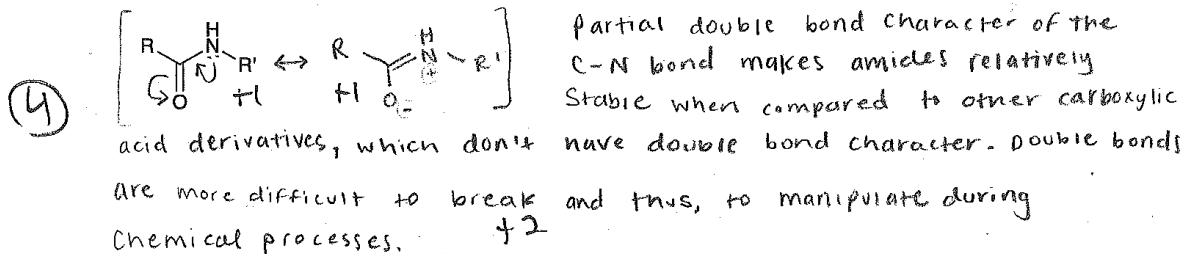 R H N R' O +1 ↔ R H N + R' O - +1
Partial double bond character of the
C-N bond makes amides relatively
④ Stable when compared to other carboxylic
acid derivatives, which don't have double bond character. Double bonds
are more difficult to break and thus, to manipulate during
Chemical processes. +2